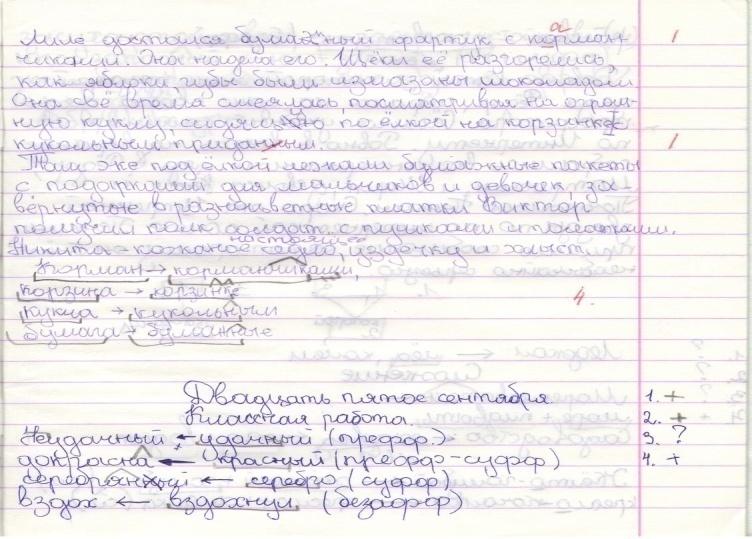 Лиле достался бумажный фартик с корман-
чиками. Она надела его. Щёки её разгорелись,
как яблоки, губы были измазаны шоколадом.
Она всё время смеялась, посматривая на огром-
ную куклу, сидящую по ёлкой на корзинке с
кукольным приданым.
Там же под ёлкой лежали бумажные пакеты
с подарками для мальчиков и девочек, за-
вёрнутые в разноцветные платки. Виктор
получил полк солдат с пушками и палатками.
Никита - кожаное настоящее седло, уздечку и хлыст.
Корман → корманчиками,
корзина → корзинке
кукла → кукольным
бумага → бумажные
а
1
1
4.
Двадцать пятое сентября.
Классная работа.
Неудачный ← удачный (префф.)
докрасна ← красный (префф-суфф)
серебряный ← серебро (суфф)
вздох ← вздохнул (безафф)
1. +
2. +
3. ?
4. +